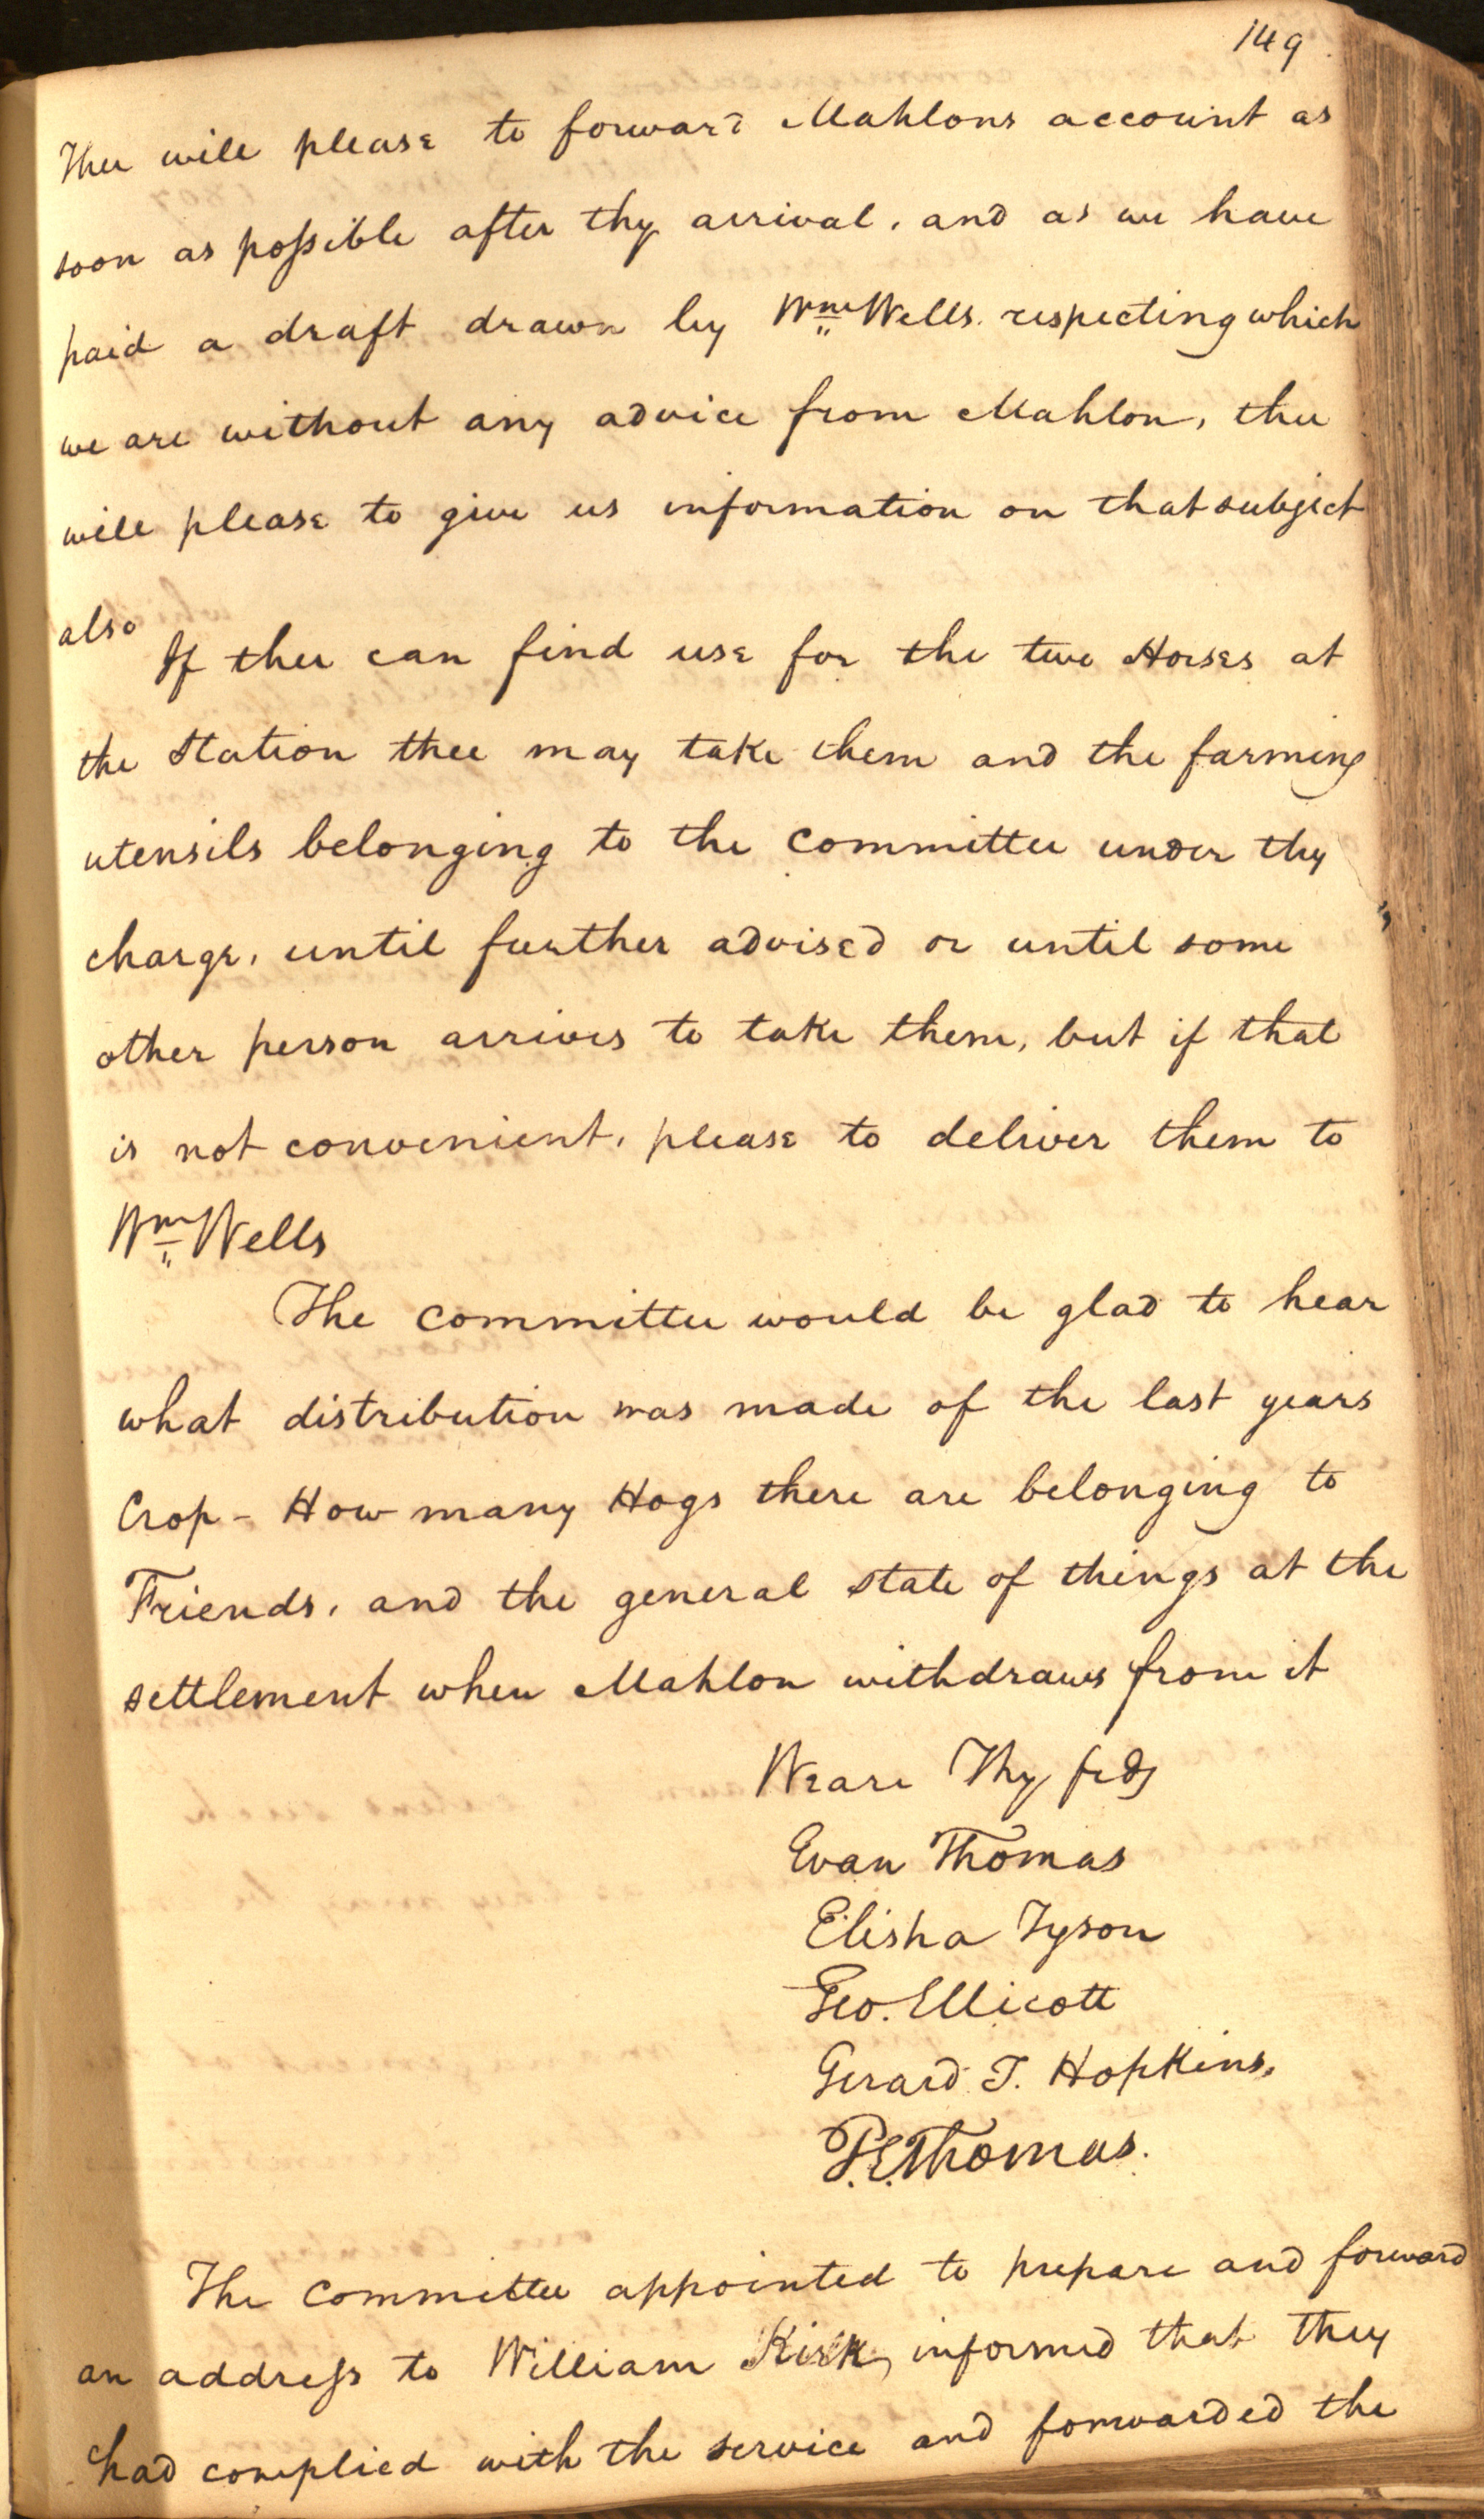 149
Thee will please to forward Mahlons account as
soon as possible after thy arrival, and as we have
paid a draft drawn by Wm Wells. respecting which
we are without any advice from Mahlon, thee
will please to give us information on that subject
also
If thee can find use for the two Horses at
the Station thee may take them and the farming
utensils belonging to the Committee under thy
charge, until further advised or until some
other person arrives to take them, but if that
is not convenient, please to deliver them to
Wm Wells
The Committee would be glad to hear
what distribution was made of the last years
Crop - How many Hogs there are belonging to
Friends, and the general state of things at the
settlement when Mahlon withdraws from it
We are Thy frds
Evan Thomas
Elisha Tyson
Geo. Ellicott
Gerard T. Hopkins.
P.E. Thomas.
The Committee appointed to prepare and forward
an address to William Kirk, informed that they
had complied with the service and forwarded the